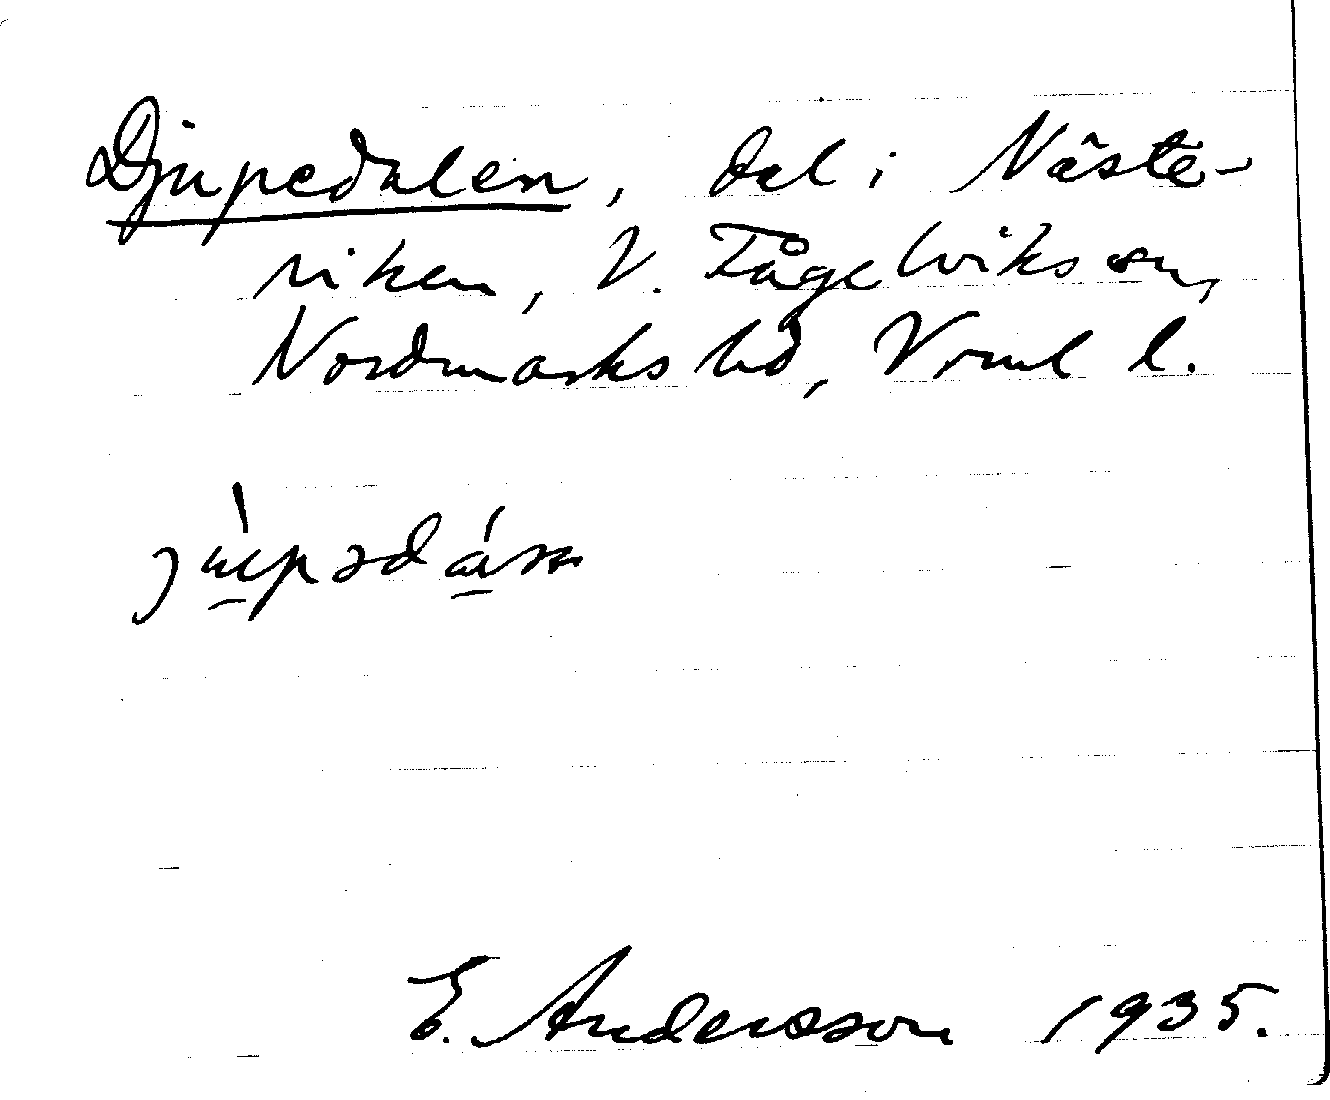 Djupedalen, dal i Näste-
riken, V. Fågelvikssn,
Nordmarks hd, Vrml l.
E. Andersson 1935.